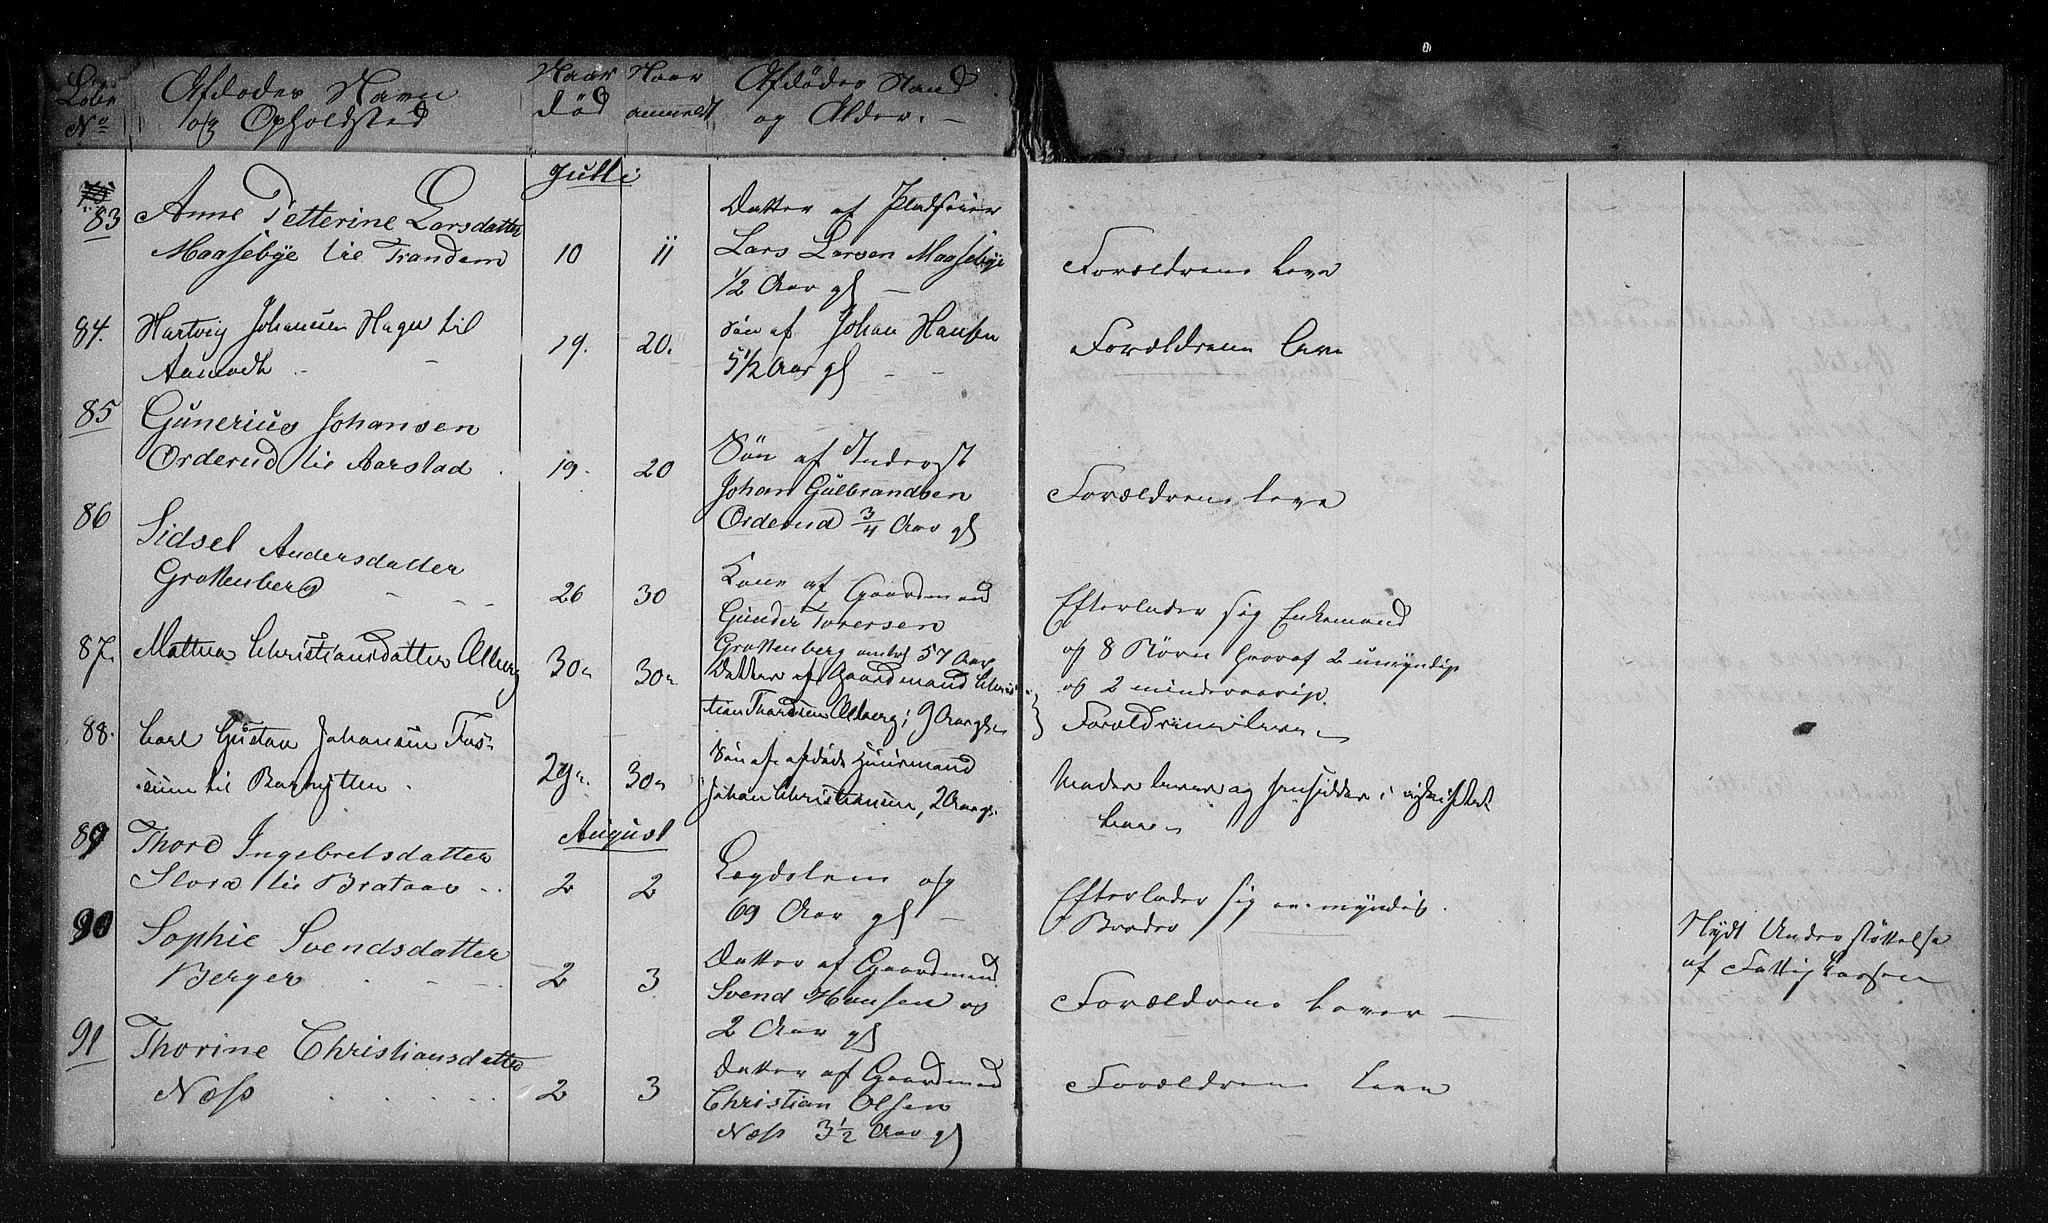 Löbe
No
Afdödes Navn
og Opholdsted
Naar
död
Naar
anmeldt
Afdödes Stand
og Alder. —
Julli
83
Anne Petterine Larsdatter
Maasebye lie Trandem
10
11
Datter af Pladseier
Lars Larsen Maasebye
1/2 Aar gl —
Forældrene leve
84.
Hartvig Johansen Hagen til
Aamodt
19.
20.
Søn af Johan Hansen
5 1/2 Aar gl
Forældrene leve
85
Gunerius Johansen
Orderud lie Aarstad
19.
20
Søn af Inderst
Johan Gulbrandsen
Orderud 3/4 Aar gl
Forældrene leve
86
Sidsel Andersdatter
Grottenberg
26
30
Kone af Gaardmand
Gunder Toresen
Grottenberg omtrl 57 Aar
Efterlader sig Enkemand
og 8 Børn hvoraf 2 umyndige
og 2 mindreaarige.
87.
Mathea Christiansdatter Alberg
30
30
Datter af Gaardmand Chris
tian Thordsen Alberg; 9 Aar gl
Forældrene leve
88.
Carl Gustav Johansen Fos-
sum til
29
30
Søn af afdøde Huusmand
Johan Christiansen, 2 Aar gl.
Moder lever og
leve
August
89
Thore Ingebretsdatter
Slora lie Brataas
2
2
Lægdslem og
69 Aar gl —
Efterlader sig en myndig
Broder
Nydt Understøttelse
af Fattigkassen
90
Sophie Svendsdatter
Berger
2
3
Datter af Gaardmand
Svend Hansen og
2 Aar gl
Forældrene lever —
91
Thorine Christiansdatter
Næss
2
3
Datter af Gaardmand
Christian Olsen
Næss 3 1/2 Aar gl
Forældrene leve